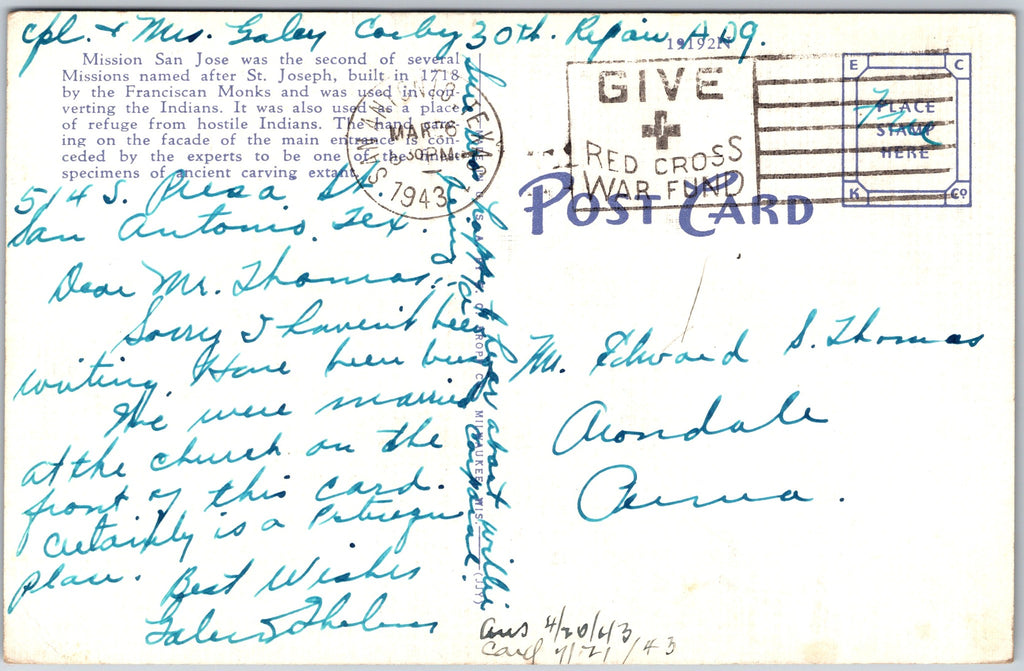 Cpl. & Mrs. Galen Corby 30th. Repair A.D.G.
19192N
Mission San Jose was the second of several
Missions named after St. Joseph, built in 1718
by the Franciscan Monks and was used in con-
verting the Indians. It was also used as a place
of refuge from hostile Indians. The hand carv-
ing on the facade of the main entrance is con-
ceded by the experts to be one of the finest
specimens of ancient carving extant.
514 S. Presa St.
San Antonio, Tex.
Dear Mr. Thomas:
Sorry I haven't been
writing. Have been busy
We were married
at the church on the
front of this card.
Certainly is a
place.
Best Wishes
Galen & Thelma
Sure was happy to hear about Willie
being a corporal.
SAN ANTONIO, TEXAS
MAR 6
PM
1943
GIVE
RED CROSS
WAR FUND
E C
K Co
PLACE
STAMP
HERE
Free
POST CARD
Mr. Edward S. Thomas
Avondale
Penna.
MILWAUKEE, WIS.
(JJY)
Ans 4/20/43
Card 7/21/43